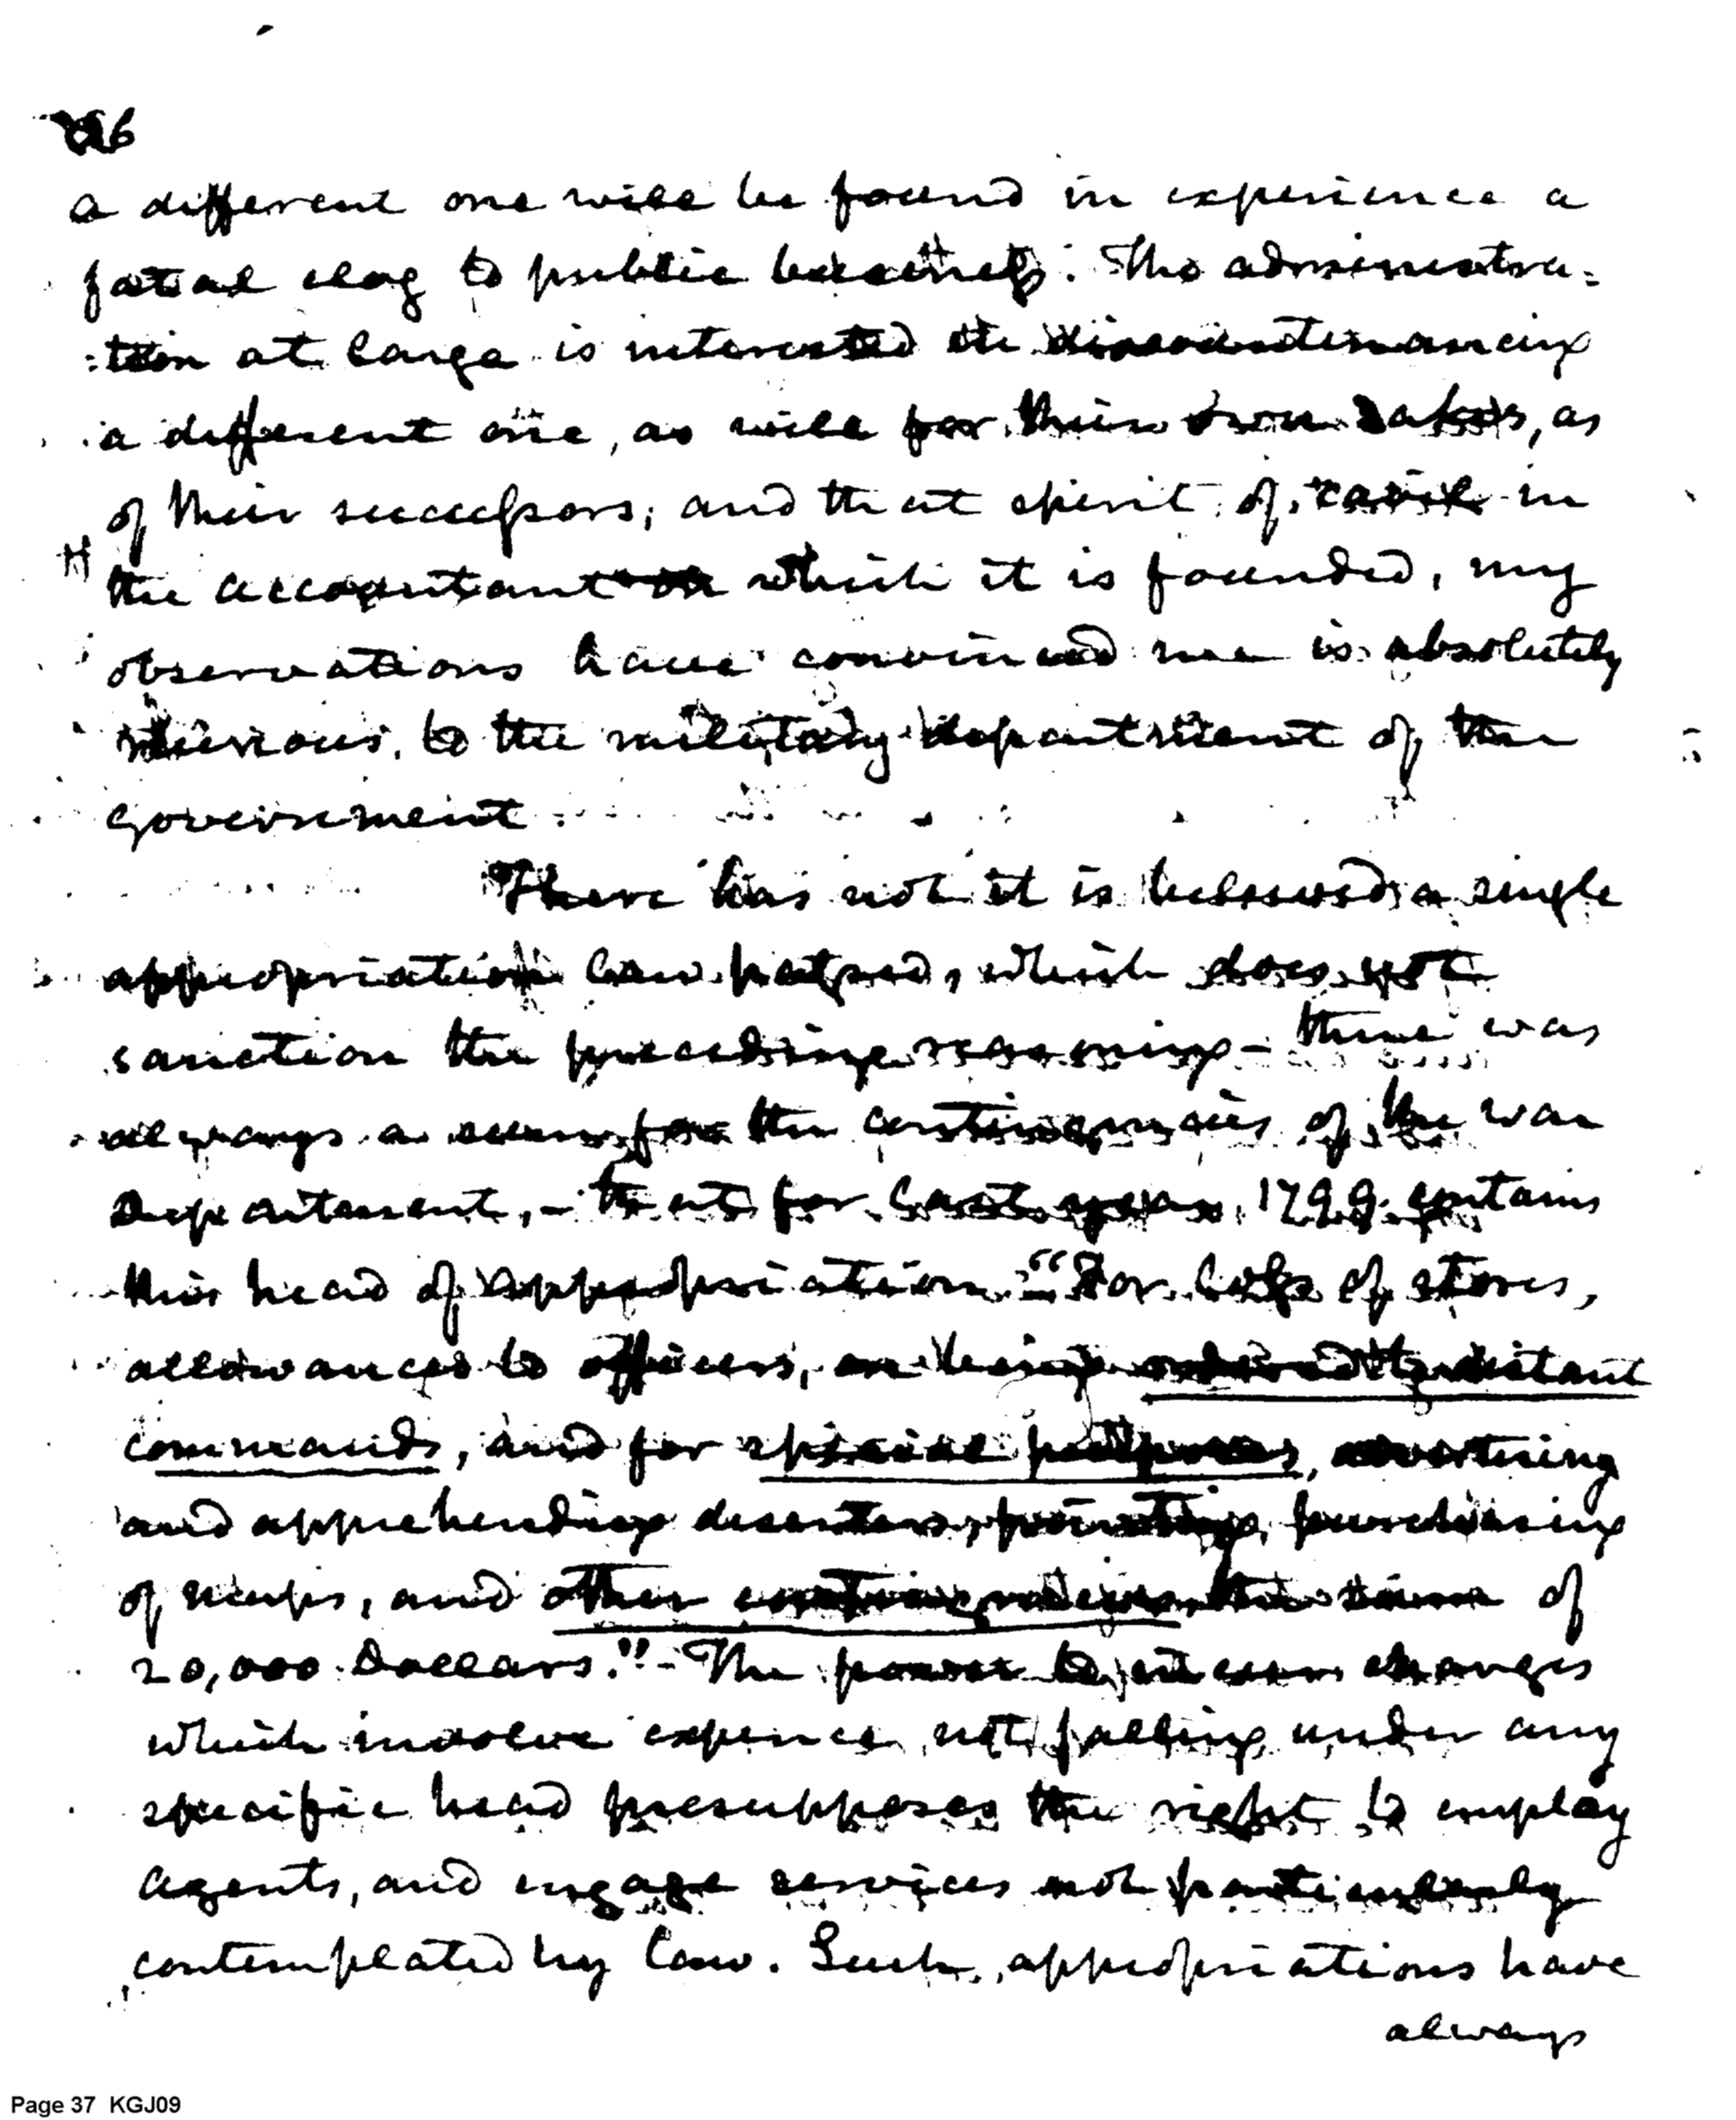 a different one will be found in experience a
fatal clog to public business. The administra=
=tion at large is interested in discountenancing
a different one, as well for their own sakes, as
of their successors; and that spirit of cavil in
the accountant on which it is founded, my
observations have convinced me is absolutely
to the military department of the
government.
There has not it is believed a single
appropriation law passed, which does not
sanction the preceding reasoning – there was
always a sum for the contingencies of the war
Department, – that for last year 1799 contains
this head of appropriation – "For loss of stores,
allowances to officers, on being ordered to distant
commands, and for special purposes, advertising
and apprehending deserters, printing, purchasing
of maps, and other contingencies, the sum of
20,000 Dollars." – The power to incur charges
which involve expence not falling under any
specific head presupposes the right to employ
agents, and engage services not particularly
contemplated by law. Such appropriations have
always
Page 37 KGJ09